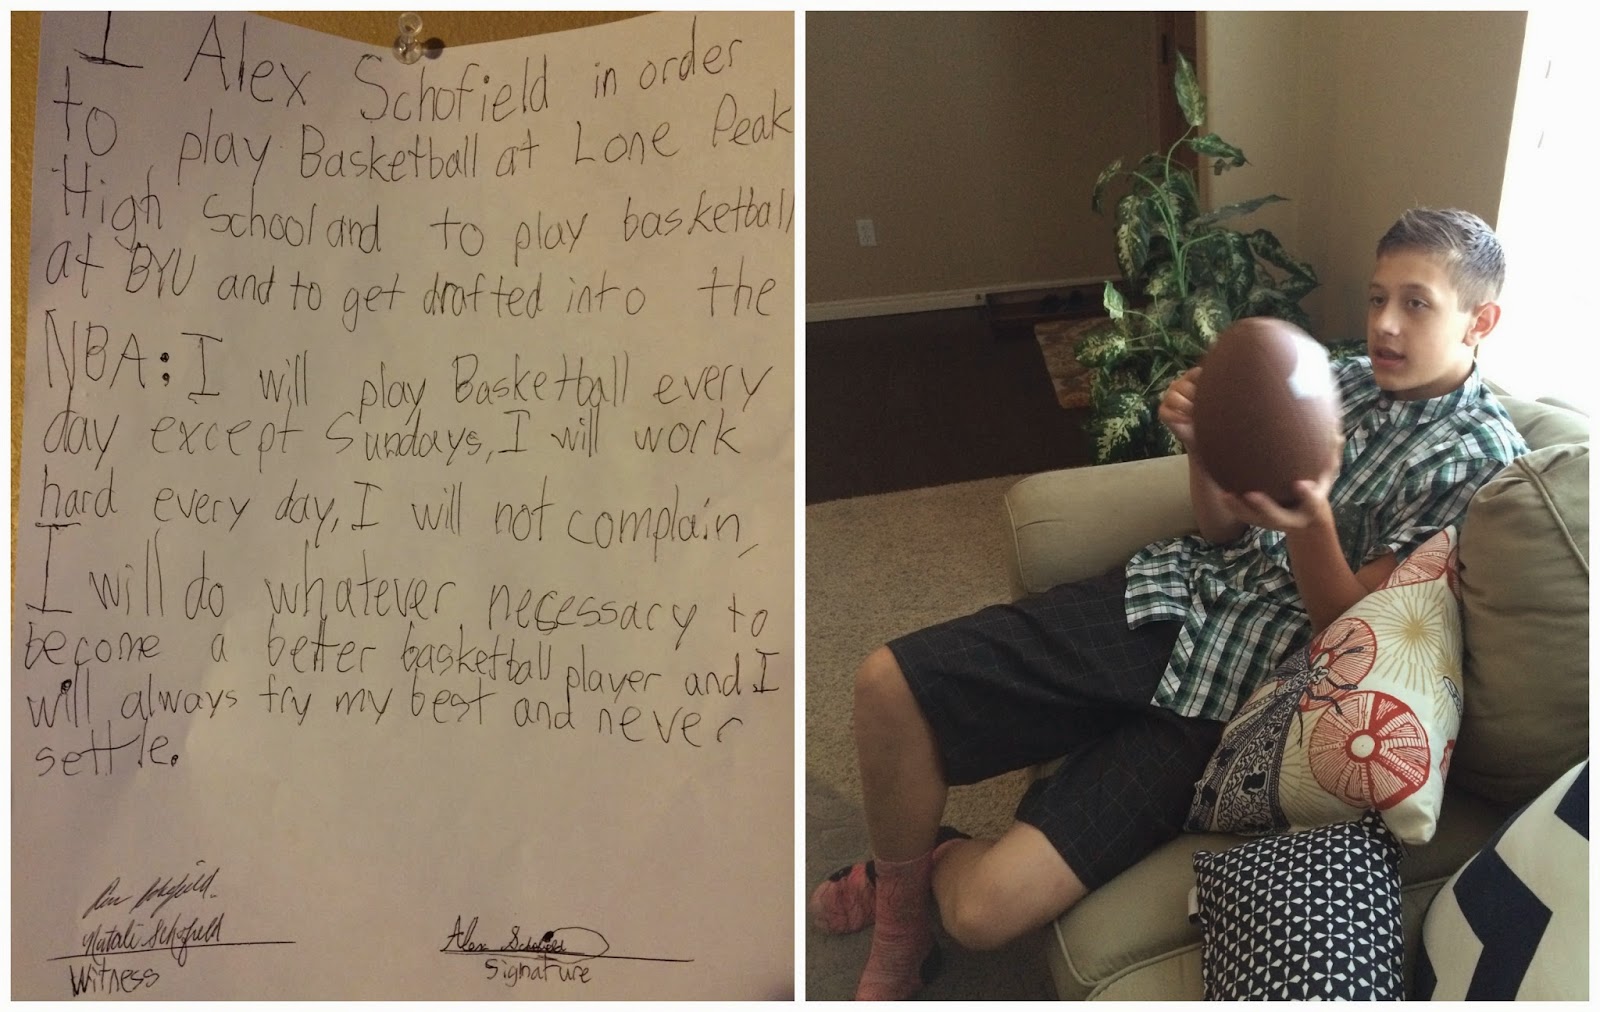 I Alex Schofield in order
to play Basketball at Lone Peak
High School and to play basketball
at BYU and to get drafted into the
NBA: I will play Basketball every
day except Sundays, I will work
hard every day, I will not complain,
I will do whatever necessary to
become a better basketball player and I
will always try my best and never
settle.
Schofield
Natali Schofield
Witness
Alex Schofield
Signature